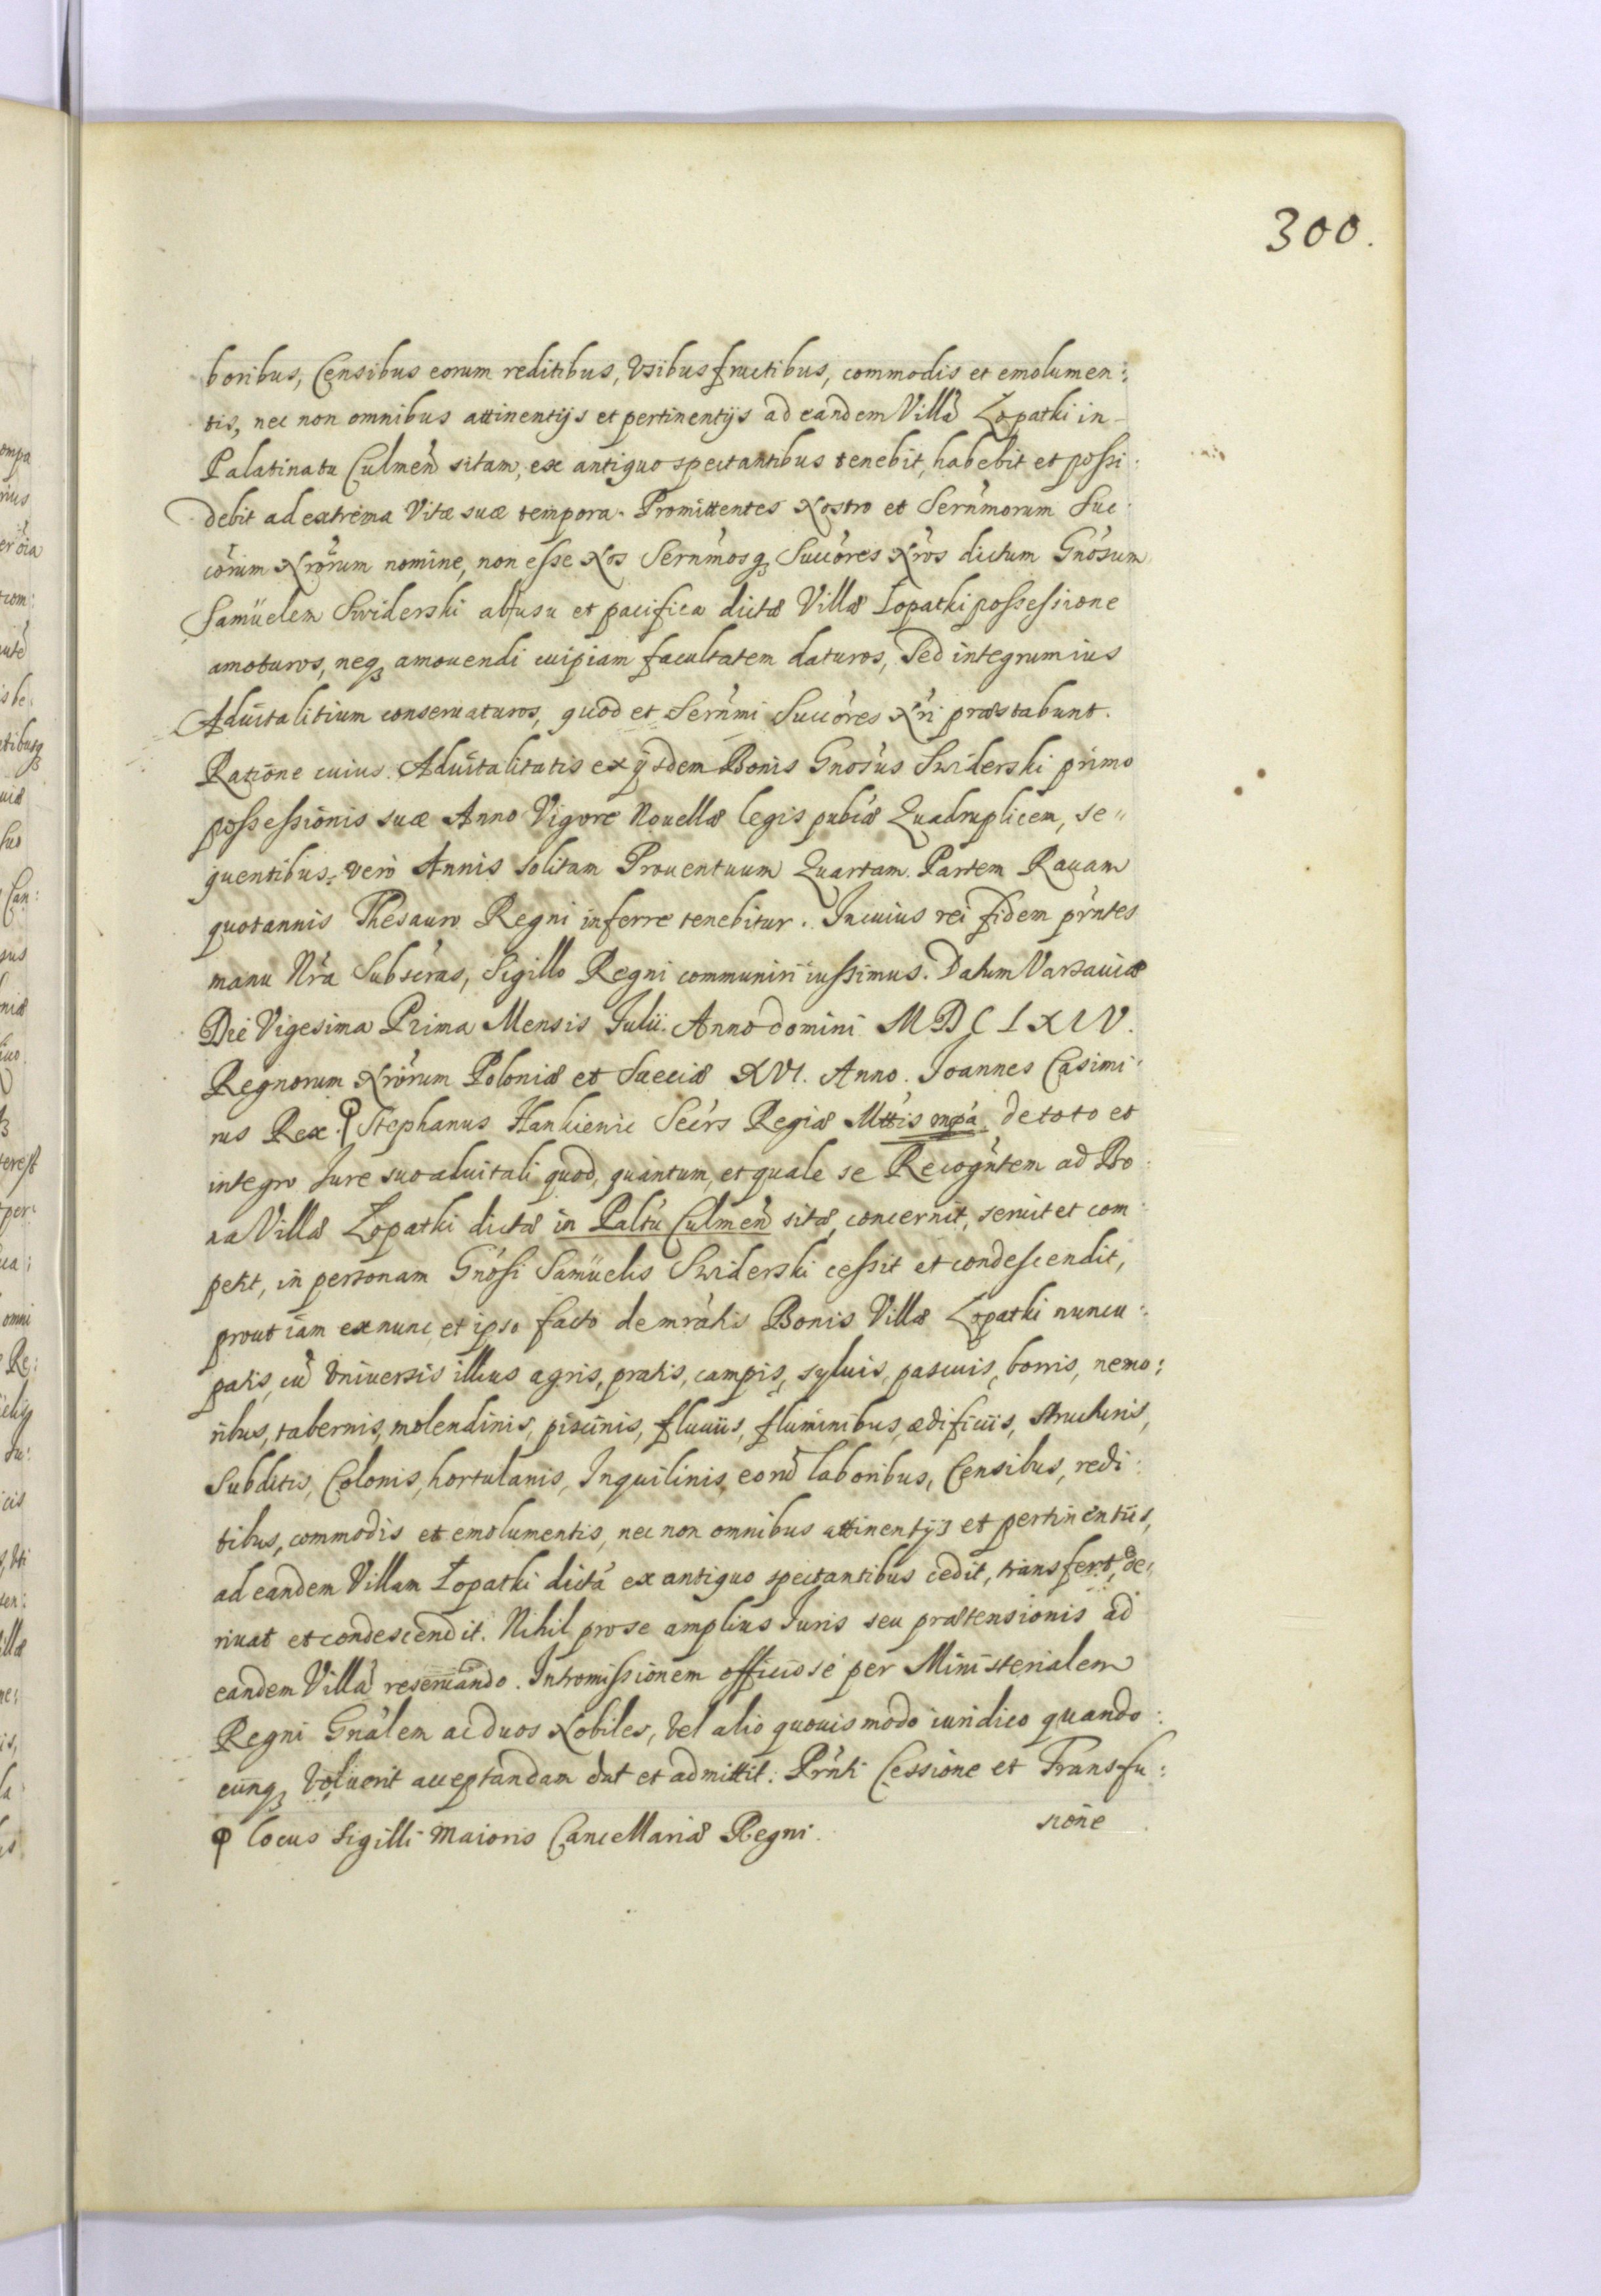 300.
boribus, Censibus eorum reditibus, Vsibusfructibus, commodis et emolumen:
tis, nec non omnibus attinentijs et pertinentijs ad eandem Villã Łopatki in
Palatinatu Culmeñ sitam, ex antiquo spectantibus tenebit, habebit et possi:
debit ad extrema Vitæ suæ tempora. Promittentes Nostro et Sernmorum Suc:
córum Nrorum nomine, non esse Nos Sernmosq3 Succores Nros dictum Gnosum
Samüelem Swiderski ab usu et pacifica dictæ Villæ Łopatki possessione
amoturos, neq3 amouendi cuipiam facultatem daturos, Sed integrum ius
Aduitalitium conseruaturos, quod et Sernmi Succores Nri præstabunt.
Ratione cuius Aduitalitatis ex ijsdem Bonis Gnosus Swiderski primo
possessionis suæ Anno Vigore Nouellæ legis pubcæ Quadruplicem, se"
quentibus vero Annis solitam Prouentuum Quartam Partem Rauam
quotannis Thesauro Regni inferre tenebitur. In cuius rei fidem prntes
manu Nra Subscras, Sigillo Regni communiri iussimus. Datum Varsauiæ
Die Vigesima Prima Mensis Julii Anno domini MDCLXIV.
Regnorum Nrorum Poloniæ et Sueciæ XVI. Anno. Joannes Casimi:
rus Rex. Stephanus Hankiewic Secrs Regiæ Mttis mpa de toto et
integro Jure suo aduitali quod, quantum, et quale se Recogntem ad Bo:
na Villæ Łopatki dictæ in Paltu Culmeñ sitæ, concernit, seruit et com
petit, in personam Gnosi Samüelis Swiderski cessit et condescendit,
prout iam ex nunc et ipso facto de mratis Bonis Villæ Łopatki nuncu:
patis, cũ Vniuersis illius agris, pratis, campis, syluis, pascuis, borris, nemo:
ribus, tabernis, molendinis, piscinis, fluuiis, fluminibus, ædificiis, structuris,
Subditis, Colonis, hortulanis, Inquilinis, eorũ laboribus, Censibus, redi:
tibus, commodis et emolumentis, nec non omnibus attinentijs et pertinentiis,
ad eandem Villam Łopatki dictã ex antiquo spectantibus cedit, transfert, de:
riuat et condescendit. Nihil pro se amplius Juris seu prætensionis ad
eandem Villã reseruando. Intromissionem officiose per Ministerialem
Regni Gnalem ac duos Nobiles, Vel alio quouis modo iuridico quando:
cunq3 Voluerit acceptandam dat et admittit. Prnti Cessione et Transfu:
sione
φ locus Sigilli Maioris Cancellariæ Regni.